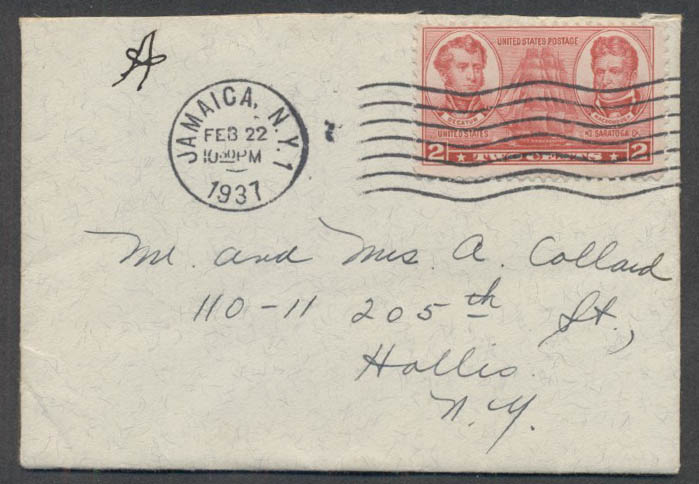 A
JAMAICA, N.Y. 1
FEB 22
10:30 PM
1937
UNITED STATES POSTAGE
DECATUR
MACDONOUGH
UNITED STATES
SARATOGA
2 TWO CENTS 2
Mr. and Mrs. A. Collard
110-11 205th St.,
Hollis
N.Y.